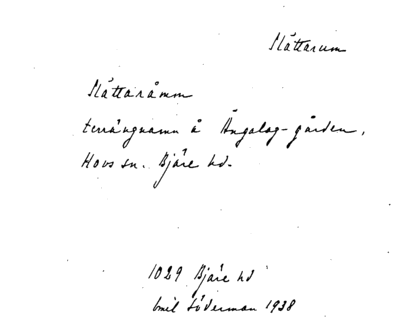 Slättarum
Slättaråmm
terrängnamn å Ängalag-gården,
Hovs sn. Bjäre hd.
1029 Bjäre hd
Emil Söderman 1938